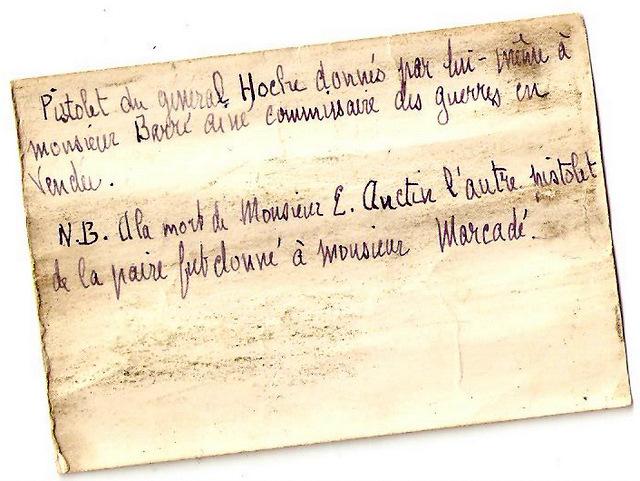 Pistolet du général Hoche donnés par lui-même à
monsieur Barré ainé commissaire des guerres en
Vendée.
N.B. A la mort de Monsieur E. Anctin l'autre pistolet
de la paire fut donné à monsieur Marcadé.